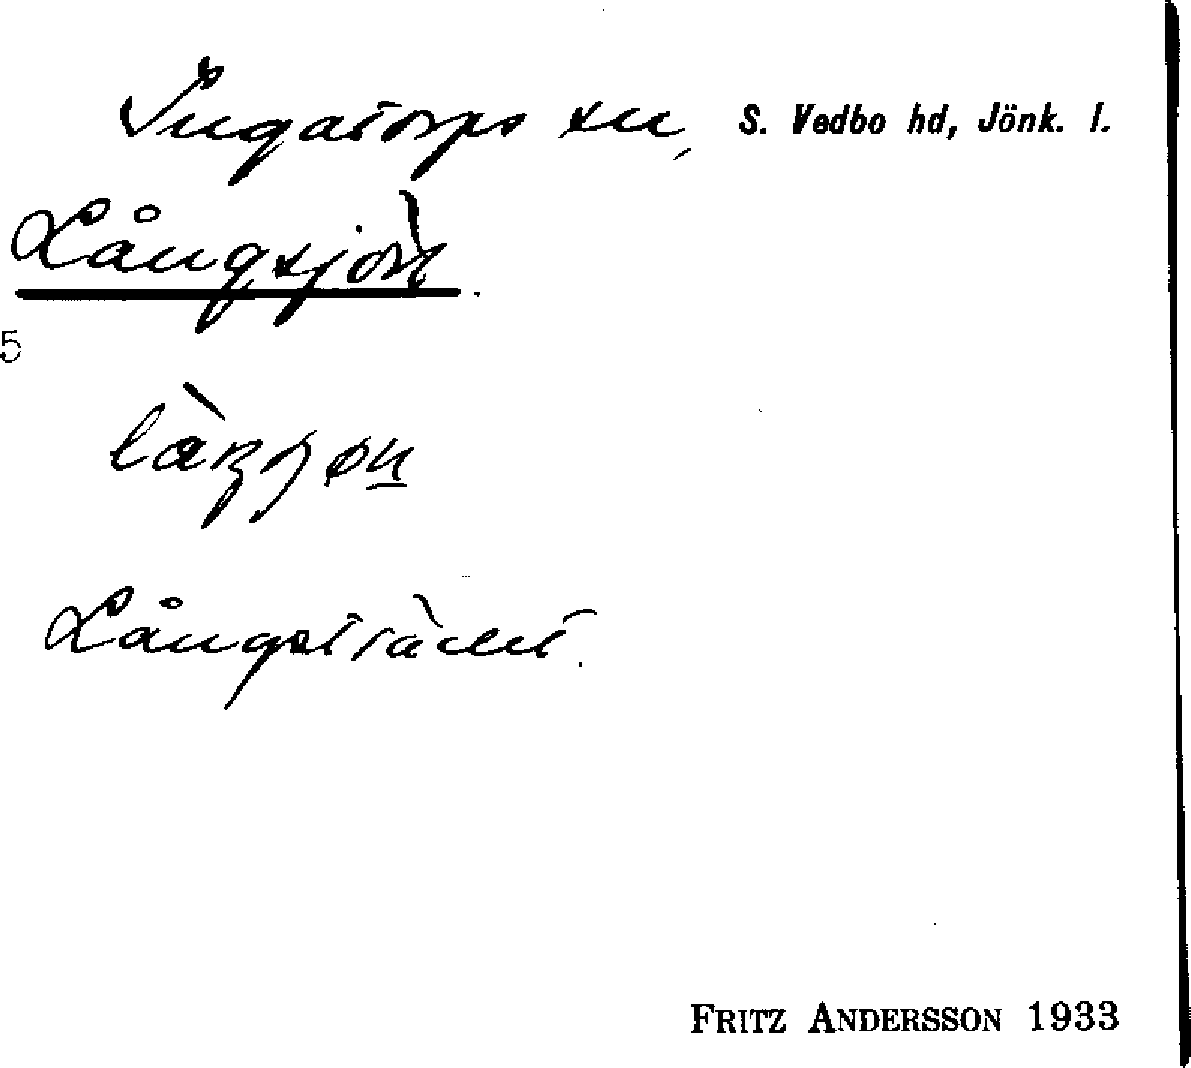 Ingatorps sn, S. Vedbo hd, Jönk. l.
Långsjön
5
Långsträckt.
FRITZ ANDERSSON 1933